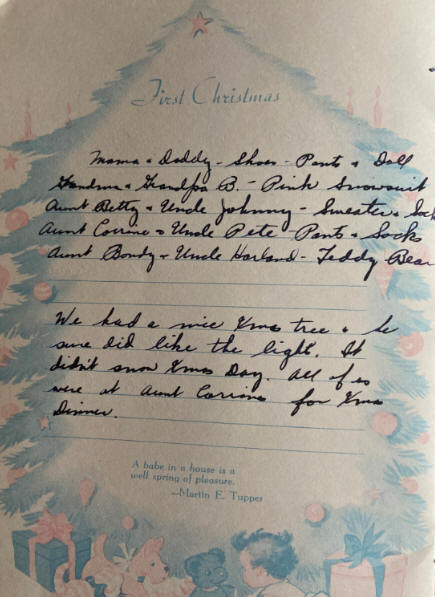 First Christmas
Mama & Daddy - Shoes - Pants & Doll
Grandma & Grandpa B. - Pink Snowsuit
Aunt Betty & Uncle Johnny - Sweater & Sock
Aunt Corrine & Uncle Pete - Pants & Socks
Aunt Bondy & Uncle Harland - Teddy Bear
We had a nice Xmas tree & he
sure did like the light. It
didn't snow Xmas Day. All of us
were at Aunt Corrine for Xmas
Dinner.
A babe in a house is a
well spring of pleasure.
—Martin E. Tupper